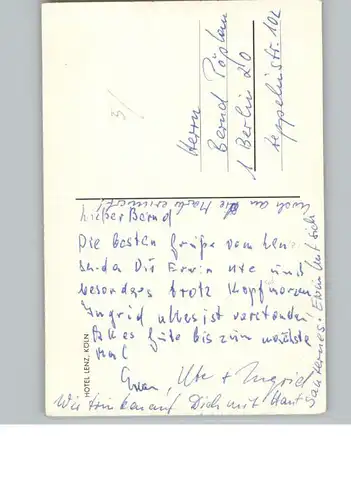 Herrn
Bernd Pöplau
1 Berlin 20
Zeppelinstr. 102
Lieber Bernd
Die besten Grüße vom
Erwin Ute und
besonders trotz Kopfnerven
Ingrid alles ist verstanden
Alles Gute bis zum nächsten
Mal
Erwin, Ute + Ingrid
Wir trinken auf Dich mit Haut
Sauternes. Erwin hat sich
noch an die Marke erinnert!
HOTEL LENZ, KÖLN
3/